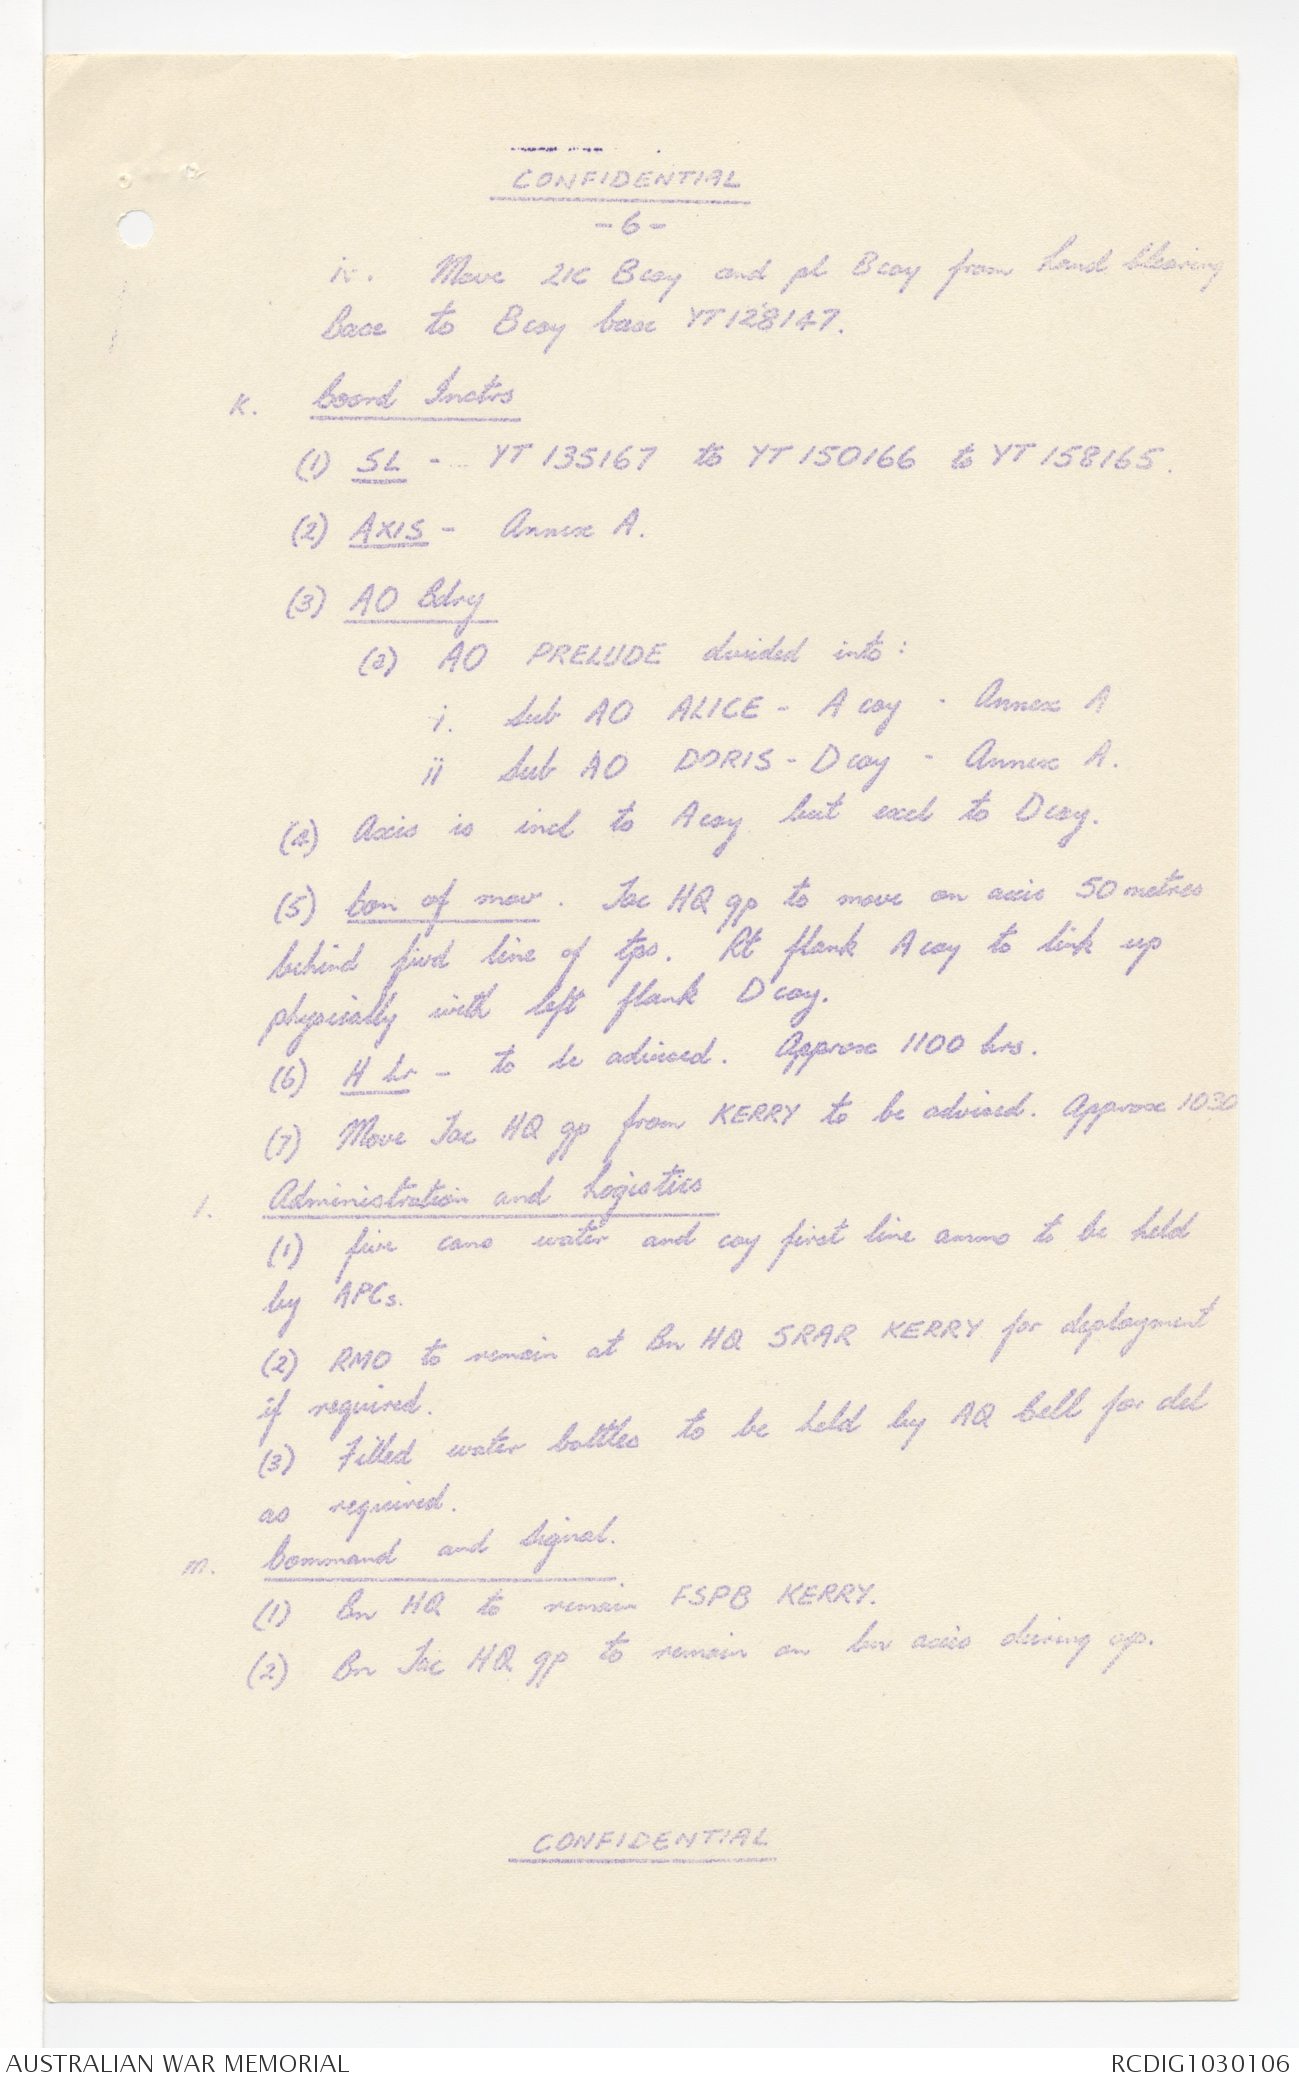 CONFIDENTIAL
-6-
iv. Move 2IC B coy and pl B coy from Land Clearing
Base to B coy base YT128147.
k. Coord Instrs
(1) SL - YT 135167 to YT 150166 to YT 158165.
(2) AXIS - Annex A.
(3) AO Bdry
(a) AO PRELUDE divided into:
i. Sub AO ALICE - A coy - Annex A
ii Sub AO DORIS - D coy - Annex A.
(4) Axis is incl to A coy but excl to D coy.
(5) Con of mov. Tac HQ gp to move on axis 50 metres
behind fwd line of tps. Rt flank A coy to link up
physically with left flank D coy.
(6) H hr - to be advised. Approx 1100 hrs.
(7) Move Tac HQ gp from KERRY to be advised. Approx 1030
l. Administration and Logistics
(1) five cans water and coy first line ammo to be held
by APCs.
(2) RMO to remain at Bn HQ 5RAR KERRY for deployment
if required.
(3) Filled water bottles to be held by AQ Cell for del
as required.
m. Command and Signal.
(1) Bn HQ to remain FSPB KERRY.
(2) Bn Tac HQ gp to remain on bn axis during op.
CONFIDENTIAL
AUSTRALIAN WAR MEMORIAL
RCDIG1030106